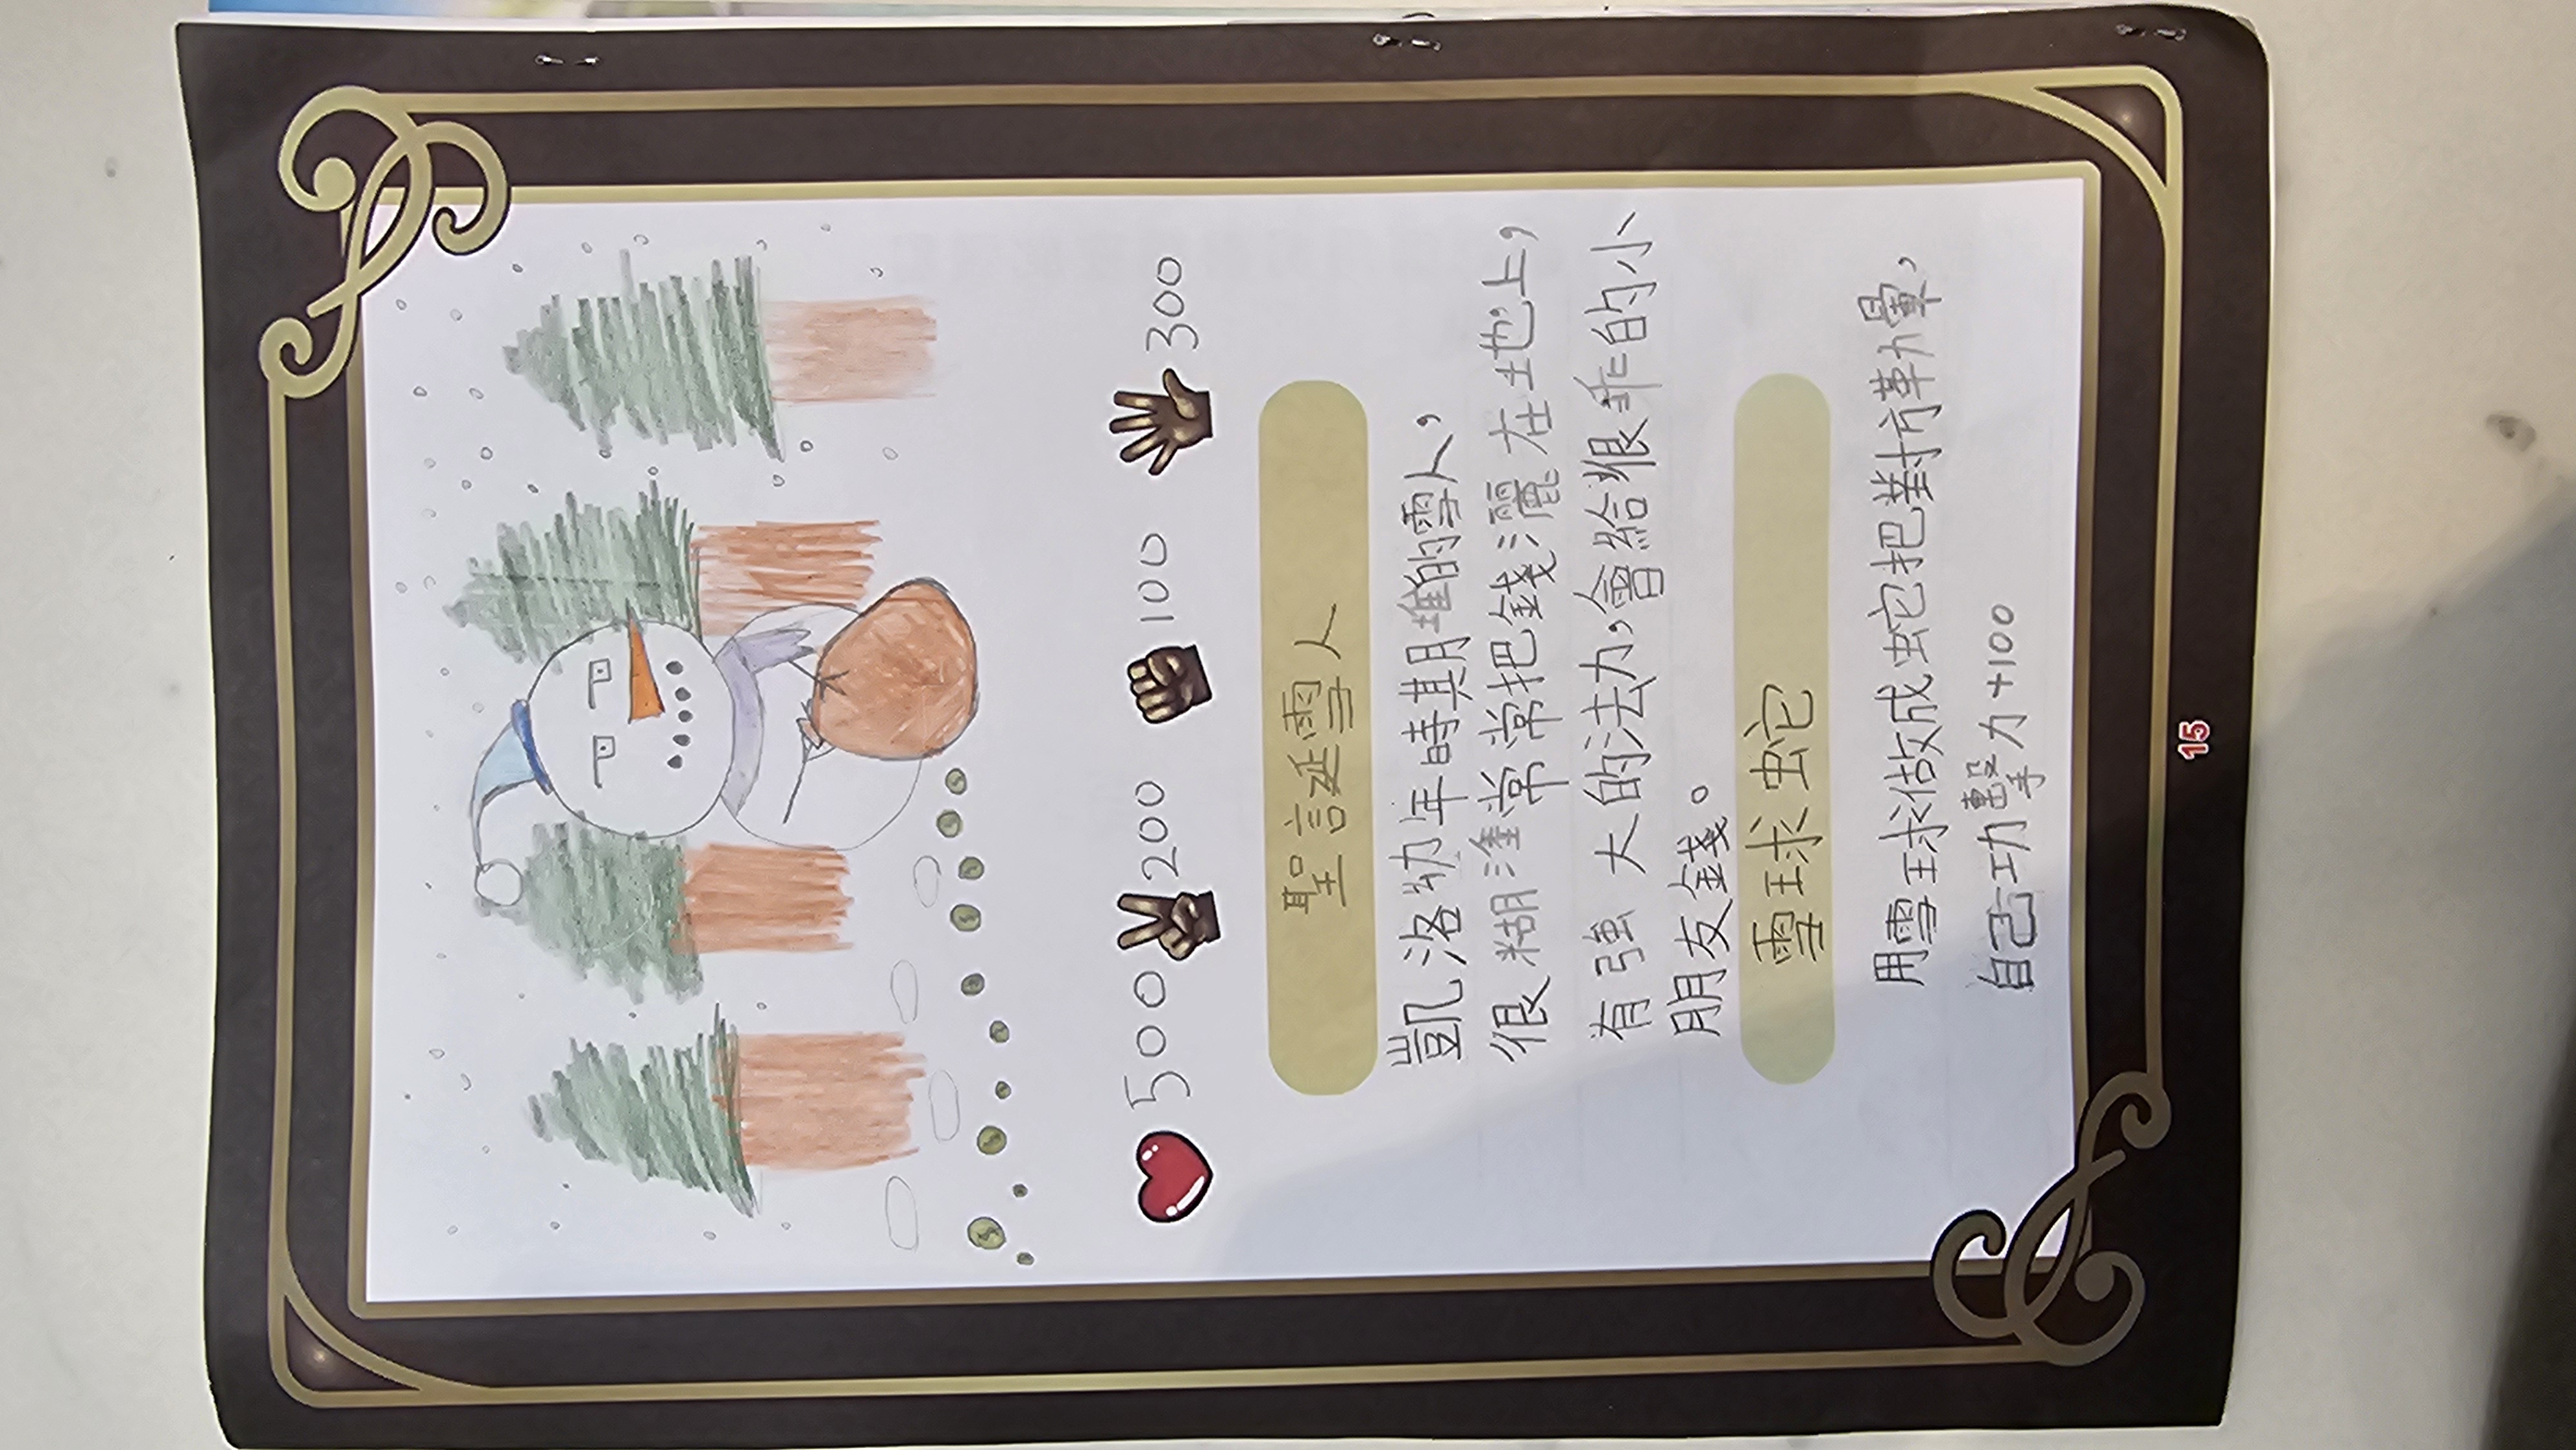 500 200 100 300
聖誕雪人
凱洛幼年時期堆的雪人，
很糊塗常常把錢灑在地上，
有強大的法力，會給很乖的小
朋友錢。
雪球蛇
用雪球做成蛇把對方革暈，
自己功擊力+100
15